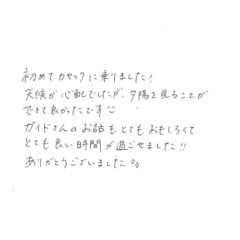 初めてカヤックに乗りました!
天候が心配でしたが、夕陽を見ることが
できて良かったです☺
ガイドさんのお話もとてもおもしろくて
とても良い時間が過ごせました!!
ありがとうございました。